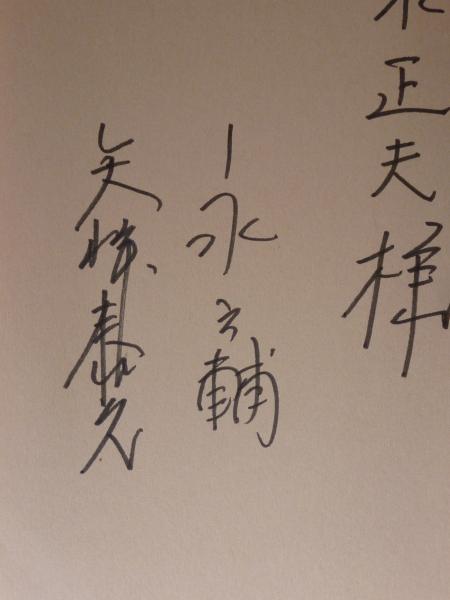 正夫様
永六輔
矢崎泰久